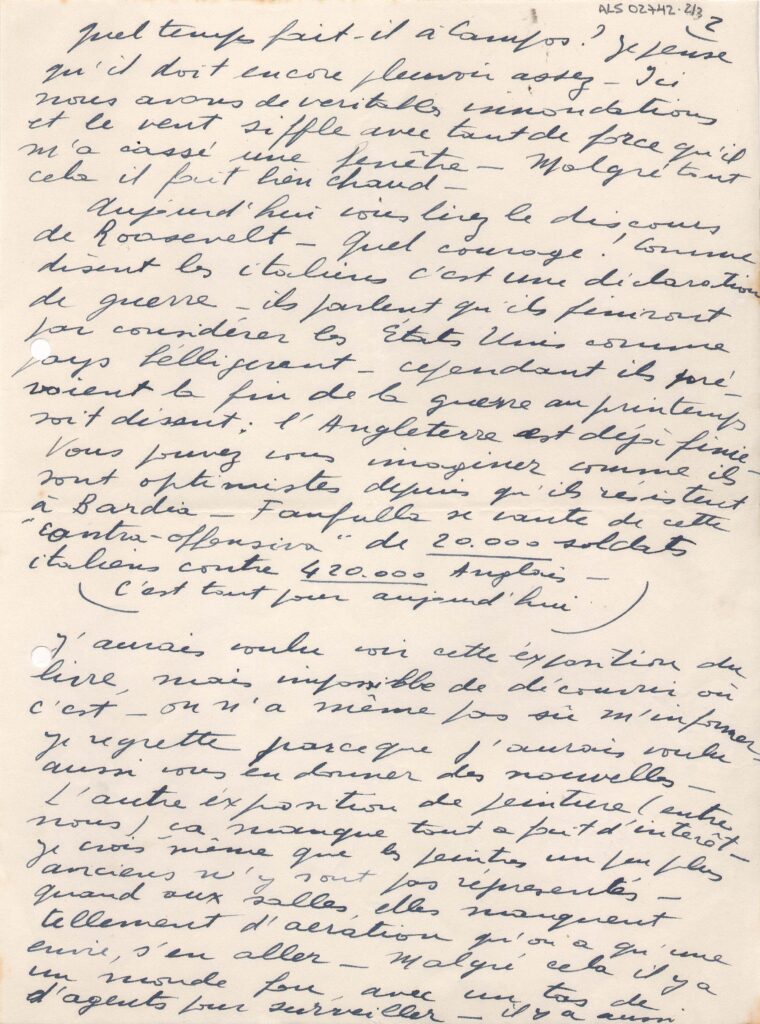 ALS 02742-2/3
2
Quel temps fait-il à Campos? Je pense
qu'il doit encore pleuvoir assez – Ici
nous avons de veritables innondations
et le vent siffle avec tant de force qu'il
m'a cassé une fenêtre – Malgré tout
cela il fait bien chaud –
Aujourd'hui vous lirez le discours
de Roosevelt – Quel courage! Comme
disent les italiens c'est une déclaration
de guerre – ils parlent qu'ils finiront
par considérer les États Unis comme
pays bélligerent – cependant ils pré-
voient la fin de la guerre au printemps
soit disant: l'Angleterre est déjà finie –
Vous pouvez vous imaginer comme ils
sont optimistes depuis qu'ils résistent
à Bardia – Fanfulla se vante de cette
"contra-offensiva" de 20.000 soldats
italiens contre 420.000 Anglais –
(C'est tout pour aujourd'hui)
J'aurais voulu voir cette éxposition du
livre, mais impossible de découvrir où
c'est – on n'a même pas sû m'informer –
Je regrette parceque j'aurais voulu
aussi vous en donner des nouvelles –
L'autre éxposition de peinture (entre
nous) ça manque tout a fait d'interêt –
Je crois même que les peintres un peu plus
anciens n'y sont pas réprésentés –
quand aux salles elles manquent
tellement d'aération qu'on a qu'une
envie, s'en aller – Malgré cela il y a
un monde fou, avec un tas de
d'agents pour surveiller – il y a aussi